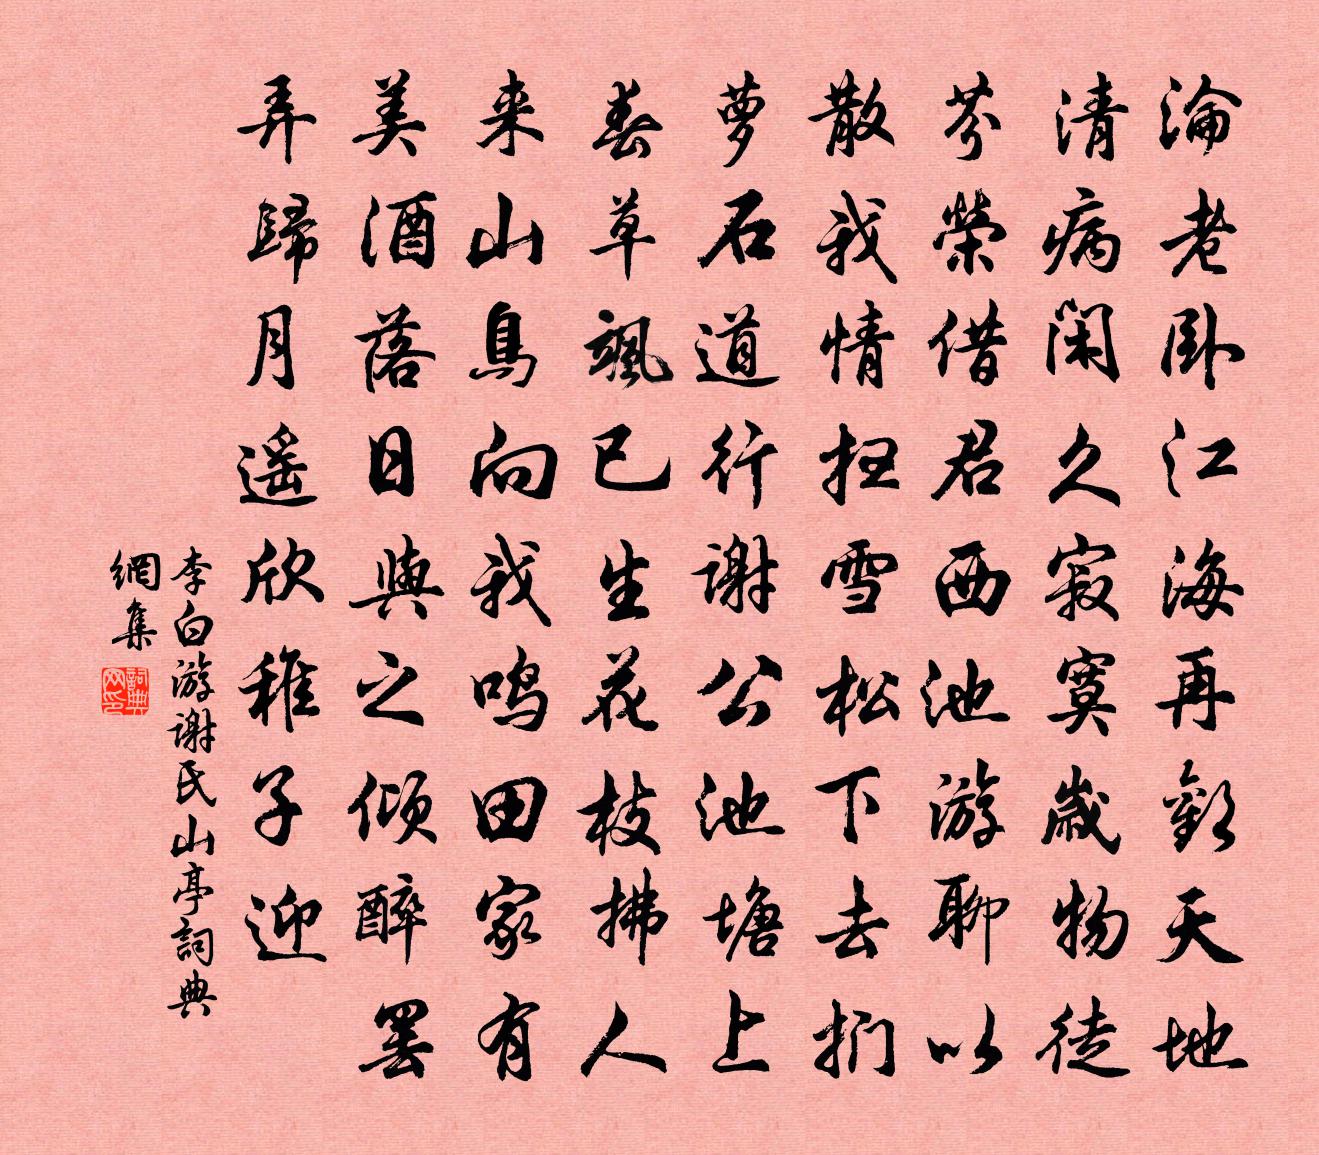 淪老卧江海再歡天地
清病閑久寂寞歲物徒
芬榮借君西池游聊以
散我情扫雪松下去扪
萝石道行谢公池塘上
春草飒已生花枝拂人
来山鳥向我鸣田家有
美酒落日與之倾醉罢
弄歸月遥欣稚子迎
李白游谢氏山亭詞典
網集
詞典网印